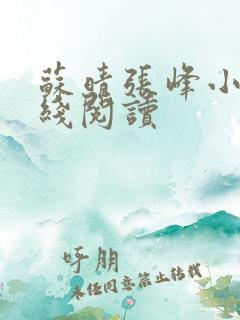 蘇晴張峰小
綫閱讀
呼朋
未经同意禁止转载